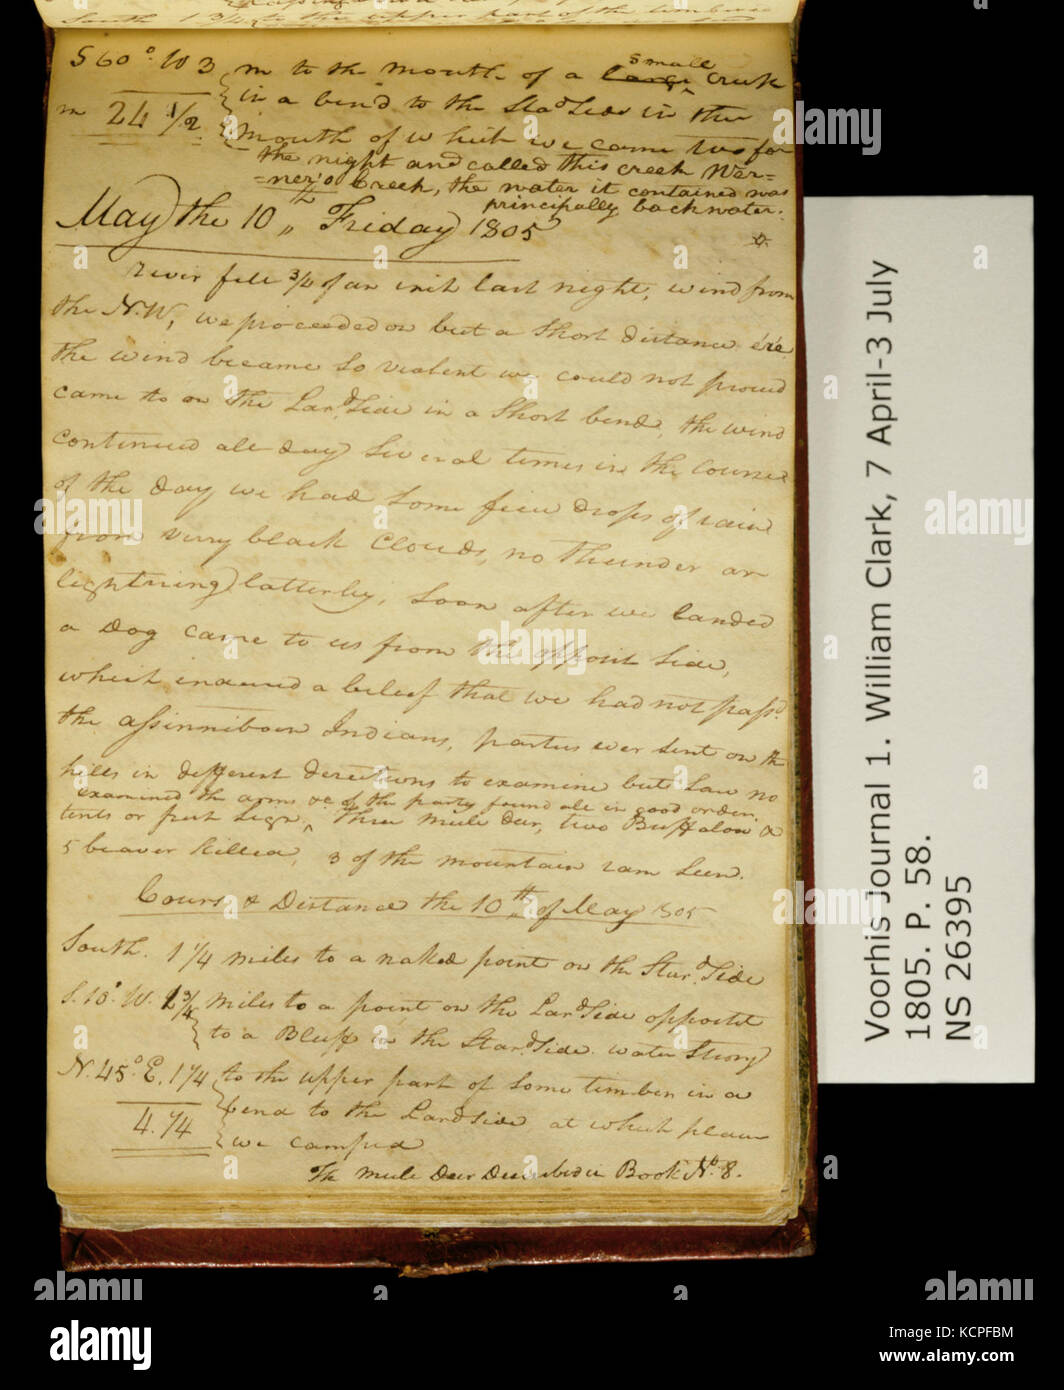 South 1 3/4 to the upper part of the timber
S 60° W 3 m to the mouth of a large small Creek
in a bend to the Stard Side in the
m 24 1/2 mouth of which we came too for
the night and called this creek Wer=
=ner's Creek, the water it contained was
principally backwater.
May the 10th Friday 1805
river fell 3/4 of an inch last night, wind from
the N.W, we proceeded on but a Short distance e're
the wind became So violent we could not proceed
came to on the Lard Side in a Short bend, the wind
continued all day Several times in the Course
of the day we had Some fiew drops of rain
from verry black Clouds, no thunder or
lightning latterly, Soon after we landed
a Dog came to us from the opposit Side,
which induced a belief that we had not passd.
the assinniboin Indians, parties wer Sent on the
hills in different derections to examine but Saw no
examined the arms &c of the party found all in good order.
tents or fresh Sign, Three mule deer, two Buffalow &
5 beaver killed, 3 of the mountain ram Seen.
Cours & Distance the 10th of May 1805
South. 1 1/4 miles to a naked point on the Stard. Side
S. 10° W. 1 3/4 miles to a point on the Lard Side opposit
to a Bluff in the Stard. Side. water Strong
N. 45° E. 1 1/4 to the upper part of Some timber in a
bend to the Lard Side at which place
4. 1/4 we camped
The mule Deer Book No. 8.
Voorhis Journal 1. William Clark, 7 April-3 July
1805. P. 58.
NS 26395
alamy
a
Image ID: KCPFBM
www.alamy.com